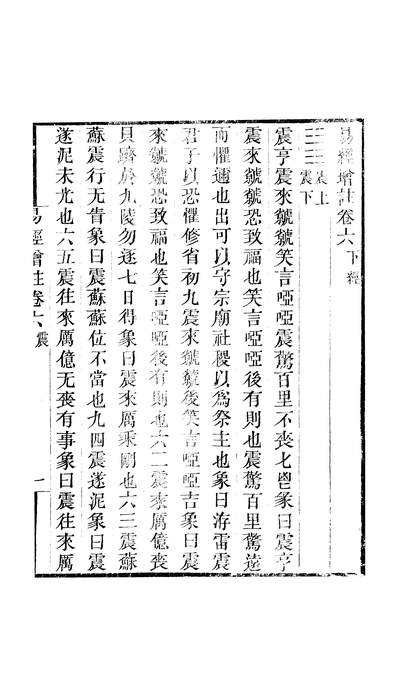 易經增註卷六 下經
震上
震下
震亨震來虩虩笑言啞啞震驚百里不喪匕鬯彖曰震亨
震來虩虩恐致福也笑言啞啞後有則也震驚百里驚遠
而懼邇也出可以守宗廟社稷以爲祭主也象曰洊雷震
君子以恐懼修省初九震來虩虩後笑言啞啞吉象曰震
來虩虩恐致福也笑言啞啞後有則也六二震來厲億喪
貝躋於九陵勿逐七日得象曰震來厲乘剛也六三震蘇
蘇震行无眚象曰震蘇蘇位不當也九四震遂泥象曰震
遂泥未光也六五震往來厲億无喪有事象曰震往來厲
易經增註卷六 震 一